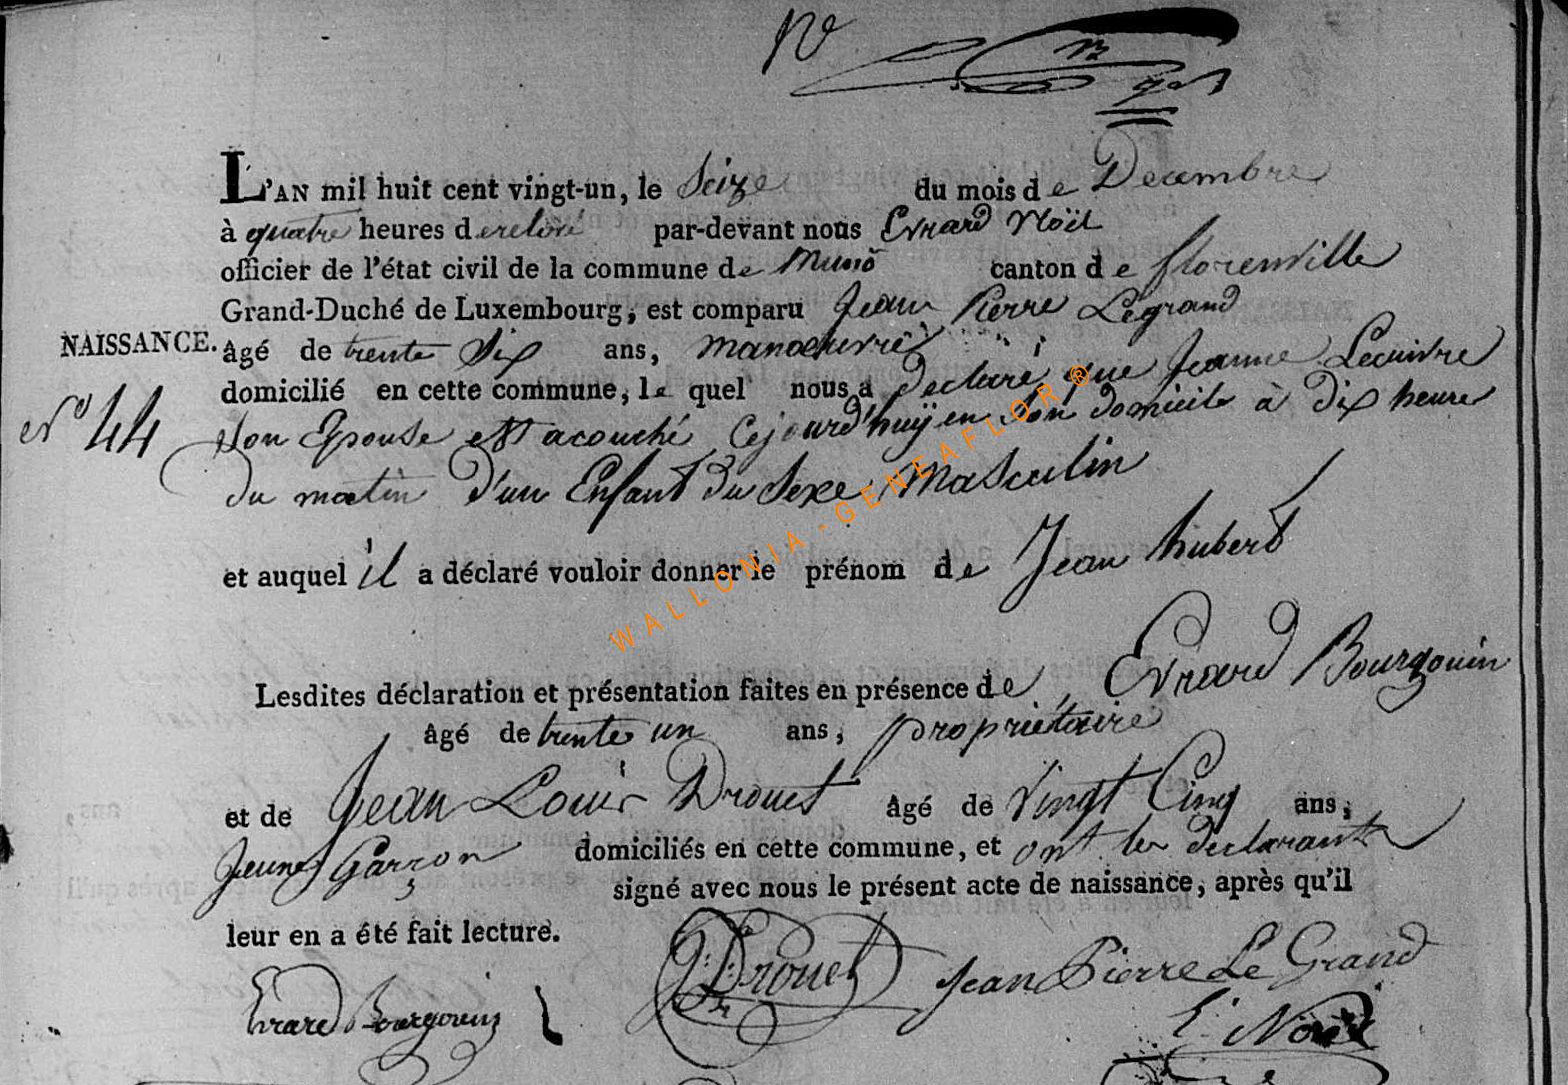 L'AN mil huit cent vingt-un, le Seize du mois de Decembre
à quatre heures de relevé par-devant nous Evrard Noël
officier de l'état civil de la commune de Muno canton de florenville
Grand-Duché de Luxembourg, est comparu Jean Pierre Legrand
NAISSANCE. âgé de trente Six ans, manoeuvrier
domicilié en cette commune, le quel nous a declaré que Jeanne Lecuivre
N° 44 Son Epouse est acouché Cejourd'huÿ en Son domicile à Dix heure
du matin d'un Enfant du Sexe Masculin
et auquel il a déclaré vouloir donner le prénom de Jean hubert
Lesdites déclaration et présentation faites en présence de Evrard Bourgouin
âgé de trente un ans, propriétaire
et de Jean Louis Drouet âgé de Vingt Cinq ans,
Jeune Garçon domiciliés en cette commune, et ont les declarants
signé avec nous le présent acte de naissance, après qu'il
leur en a été fait lecture.
Evrard Bourgouin Drouet Jean Pierre Le Grand
E. Noël
WALLONIA-GENEAFLOR®